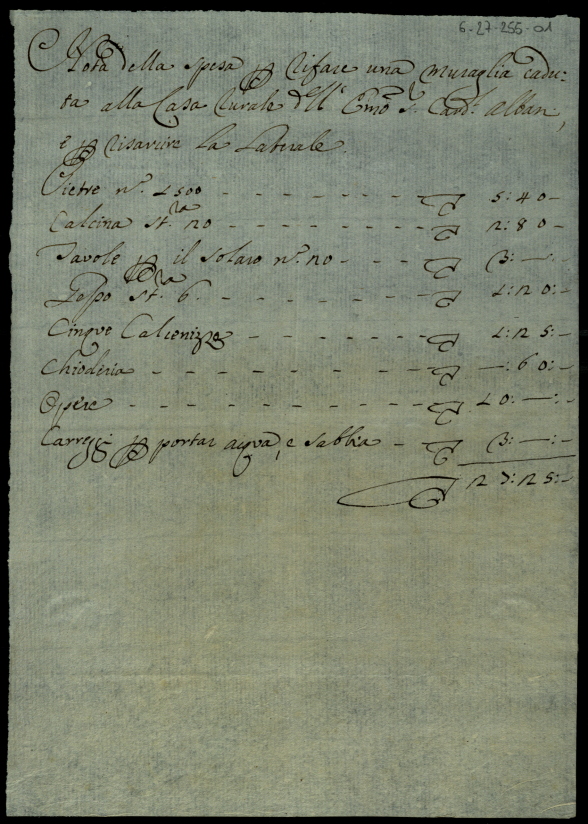 6-27-255-01
Nota della spesa p rifare una muraglia cadu-
ta alla Casa rurale dell' Emo S. Card.l alban,
e p risarcire la Laterale.
Pietre n.o 1500 - - - - - - - 5:40-
Calcina st.ra 20 - - - - - - - 2:80-
Tavole p il solaro n.o 20 - - - - 3:—:-
Gesso st.ra 6. - - - - - - - - 1:20:-
Cinque Calcenizze - - - - - - - 1:25:-
Chioderia - - - - - - - - - —:60:-
Opere - - - - - - - - - - 10:—:-
Carreggi p portar acqua, e sabbia - 3:—:-
27:25:-